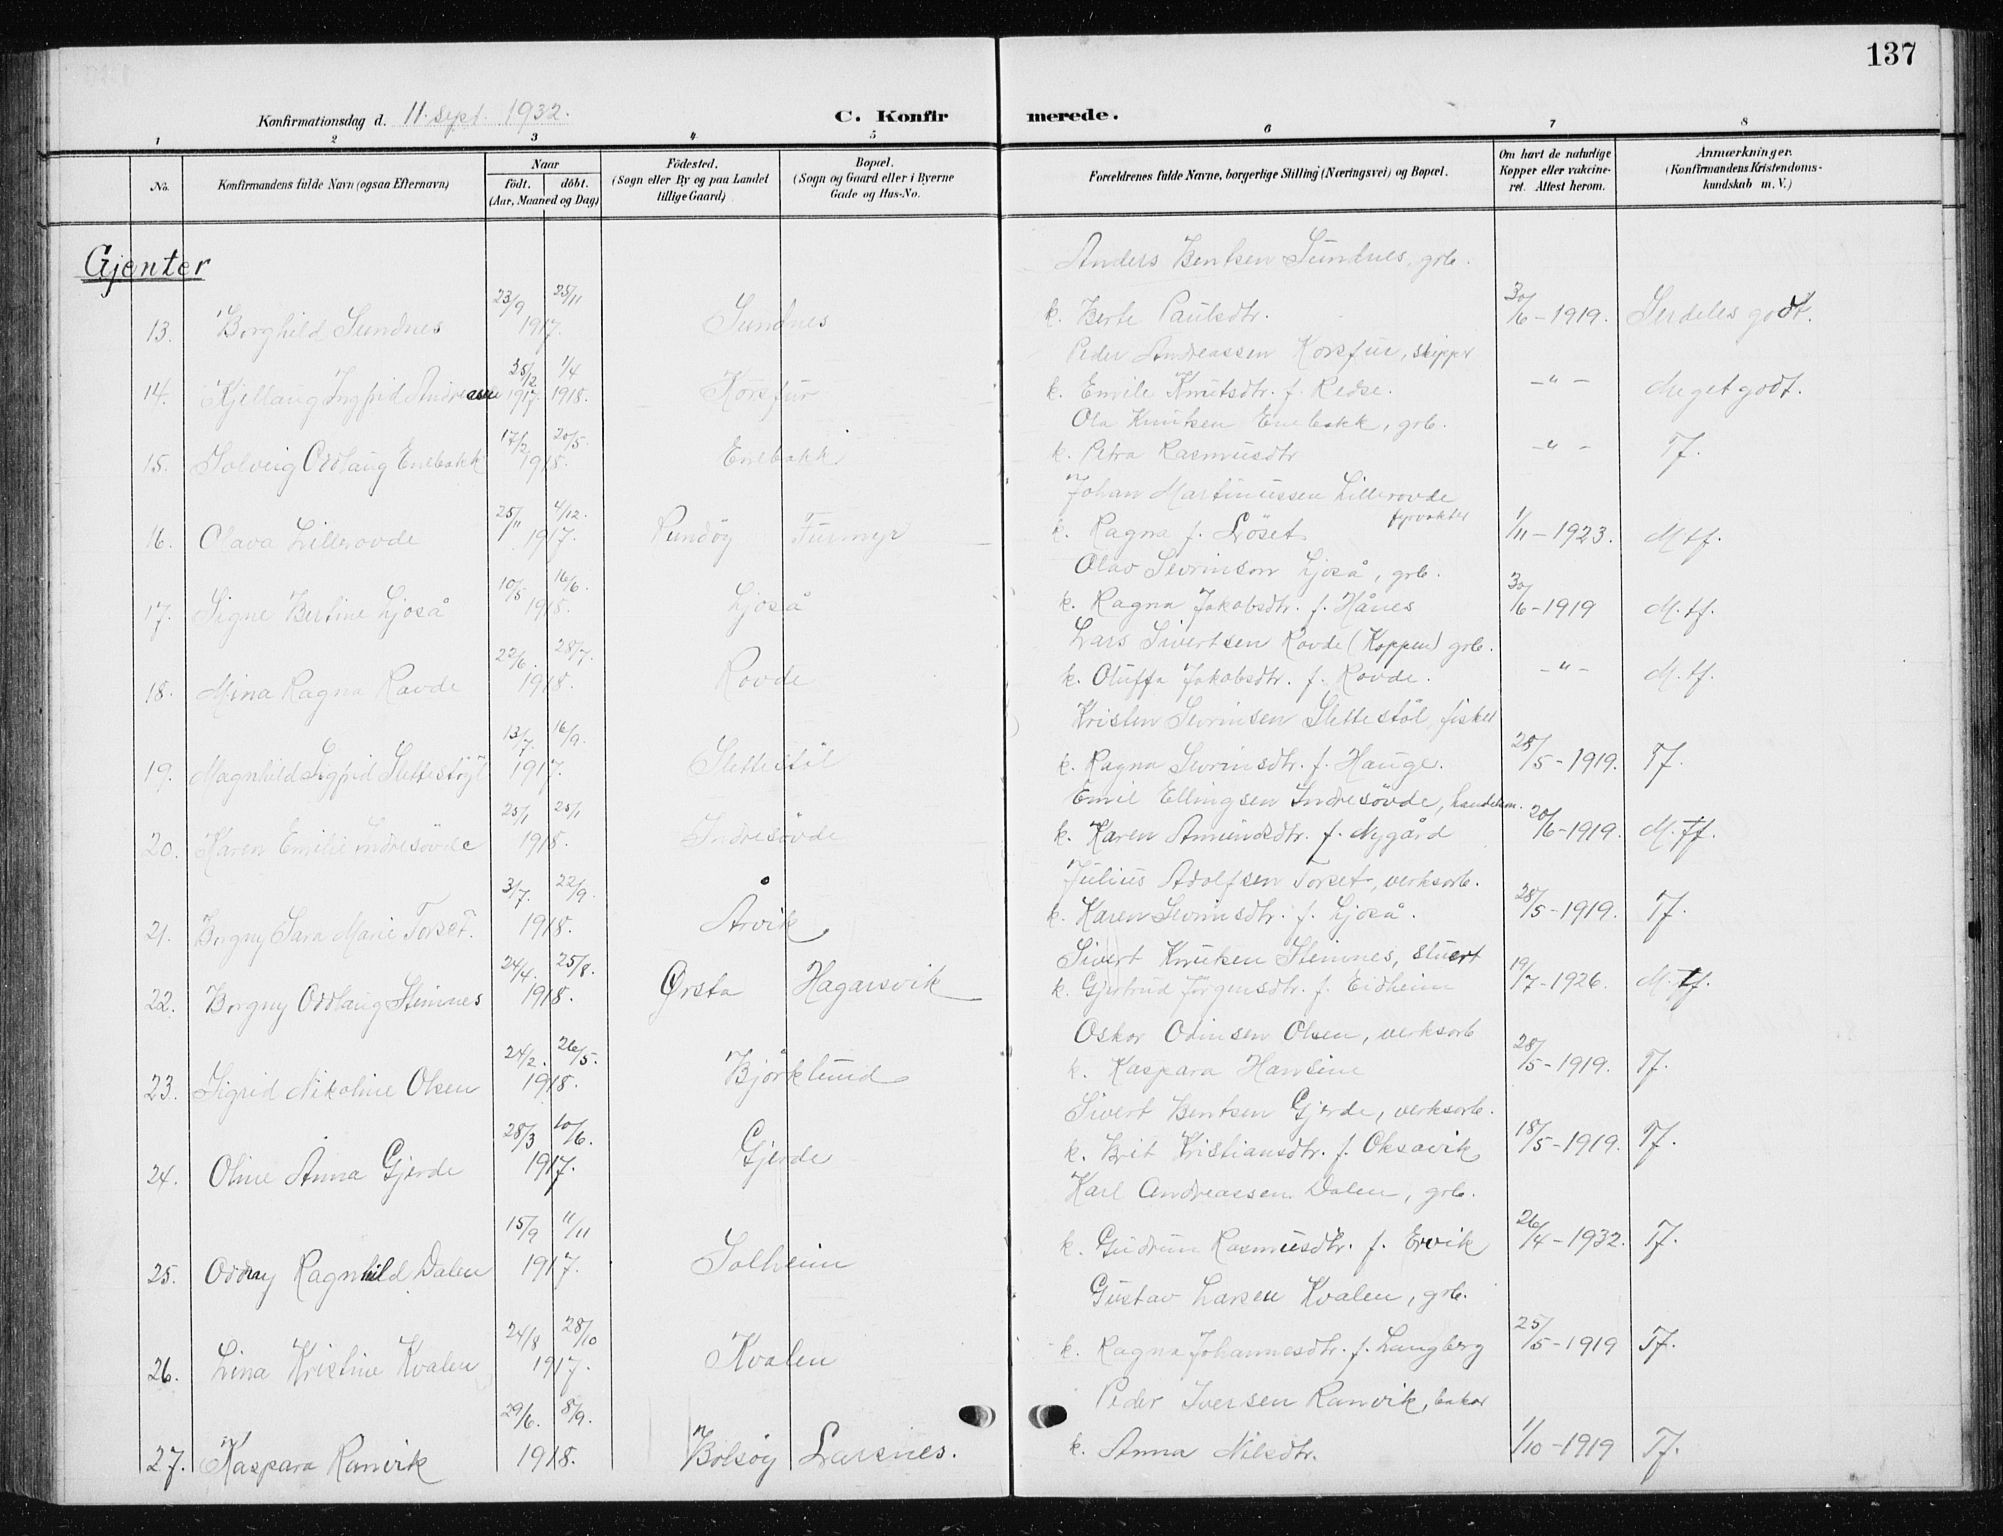 137
Konfirmationsdag d. 11. sept. 1932.
C. Konfirmerede.
1 2 3 4 5 6 7 8
No.
Konfirmandens fulde Navn (ogsaa Efternavn)
Naar
födt. döbt.
(Aar, Maaned og Dag)
Födested.
(Sogn eller By og paa Landet
tillige Gaard)
Bopæl.
(Sogn og Gaard eller i Byerne
Gade og Hus-No.
Forældrenes fulde Navne, borgerlige Stilling (Næringsvei) og Bopæl.
Om havt de naturlige
Kopper eller vakcine-
ret. Attest herom.
Anmærkninger.
(Konfirmandens Kristendoms-
kundskab m. V.)
Gjenter
Anders Bentsen Sundnes, grb.
13. Borghild Sundnes 23/9 25/11 1917. Sundnes k. Berte Paulsdtr. 30/6-1919. Serdeles godt.
Peder Andreassen Korsfur, skipper
14. Kjellaug Ingfrid Andreassen 25/12 1917. 1/4 1918. Korsfur k. Emile Knutsdtr. f. Redse. -"- Meget godt.
Ola Knutsen Enebakk, grb.
15. Solveig Oddlaug Enebakk 17/2 20/5. 1918. Enebakk k. Petra Rasmusdtr -"- Tf.
Johan Martinussen Lillerovde
fyrvakter
16. Olava Lillerovde 25/11 4/12. 1917. Rundöy Furmyr k. Ragna f. Löset 1/11-1923. M.tf.
Olav Sevrinson Ljoså, grb.
17. Signe Bertine Ljoså 10/5 16/6. 1918. Ljoså k. Ragna Jakobsdtr. f. Hånes 30/6-1919 M.tf.
Lars Sivertsen Rovde (Koppen) grb.
18. Mina Ragna Rovde 22/6. 28/7. 1918. Rovde k. Oluffa Jakobsdtr. f. Rovde. -"- M.tf.
Kristen Sevrinsen Slettestöl, fisker
19. Magnhild Sigfrid Slettestöyl 13/7. 16/9. 1917. Slettestöl k. Ragna Sevrinsdtr. f. Hauge. 25/5-1919. Tf.
Emil Ellingsen Indresövde, handelsm.
20. Karen Emilie Indresövde 25/1 25/1 1918. Indresövde k. Karen Amundsdtr. f. Nygård 20/6-1919. M.Tf.
Julius Adolfsen Torset, verksarb.
21. Borgny Sara Marie Torset. 3/7. 22/9. 1918. Årvik k. Karen Sevrinsdtr. f. Ljoså. 28/5-1919. Tf.
Sivert Knutsen Steinnes, stuert
22. Borgny Oddlaug Steinnes 24/4. 25/8. 1918. Ørsta Hagarsvik k. Gjertrud Jörgensdtr. f. Eidheim 19/7-1926. M.tf.
Oskar Odinsen Olsen, verksarb
23. Sigrid Nikoline Olsen 24/2. 26/5. 1918. Björklund k. Kaspara Hansine 28/5-1919. Tf.
Sivert Bentsen Gjerde, verksarb.
24. Oline Anna Gjerde 28/3 10/6. 1917. Gjerde k. Brit Kristiansdtr. f. Oksavik 18/5-1919. Tf.
Karl Andreassen Dalen, grb.
25. Oddny Ragnhild Dalen 15/9 11/11 1917. Solheim k. Gudrun Rasmusdtr. f. Ervik 26/4-1932. Tf.
Gustav Larsen Kvalen, grb.
26. Lina Kristine Kvalen 24/8 28/10 1917. Kvalen k. Ragna Johannesdtr. f. Langberg 25/5-1919 Tf.
Peder Iversen Ramvik, bakar
27. Kaspara Ramvik 29/6. 8/9. 1918. Bolsöy Larsnes. k. Anna Nilsdtr. 1/10-1919 Tf.